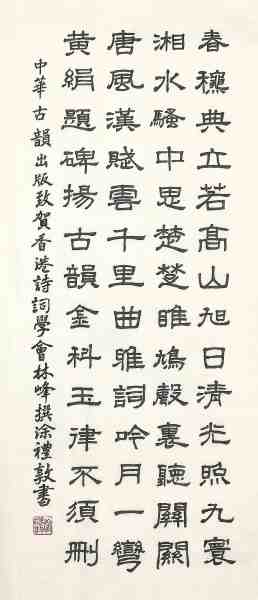 春穠典立若高山旭日清光照九寰
湘水騷中思楚楚睢鳩聲裏聽關關
唐風漢賦雲千里曲雅詞吟月一彎
黃絹題碑揚古韻金科玉律不須刪
中華古韻出版致賀香港詩詞學會林峰撰涂禮敦書